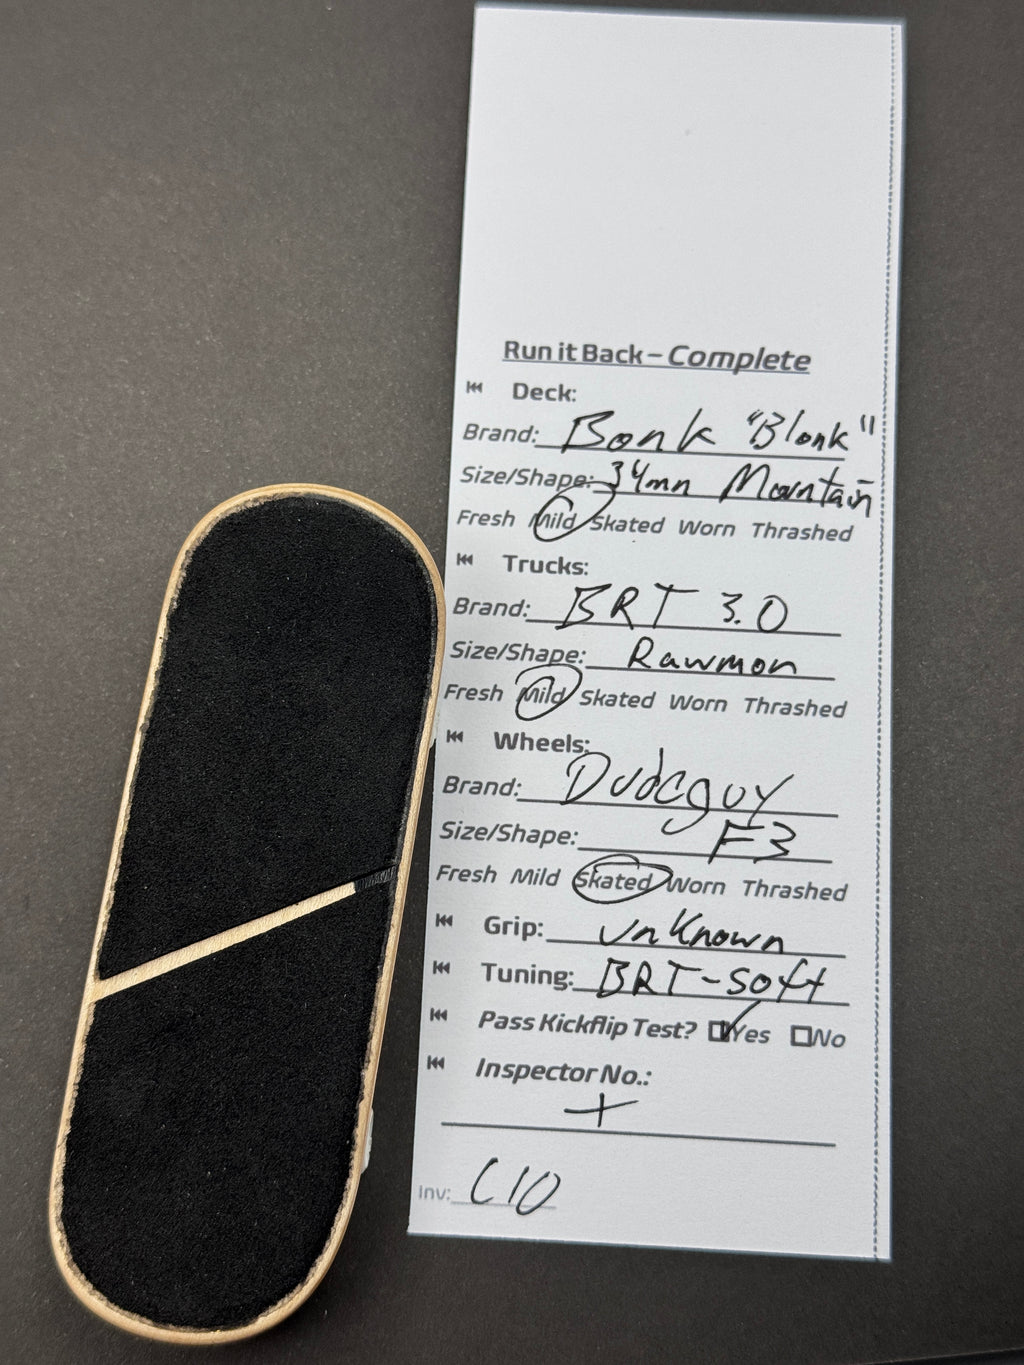 Run it Back – Complete
Deck:
Brand: Bonk "Blonk"
Size/Shape: 34mm Mountain
Fresh Mild Skated Worn Thrashed
Trucks:
Brand: BRT 3.0
Size/Shape: Rawmon
Fresh Mild Skated Worn Thrashed
Wheels:
Brand: Dudeguy
Size/Shape: F3
Fresh Mild Skated Worn Thrashed
Grip: unknown
Tuning: BRT-soft
Pass Kickflip Test? Yes No
Inspector No.:
+
Inv: C10